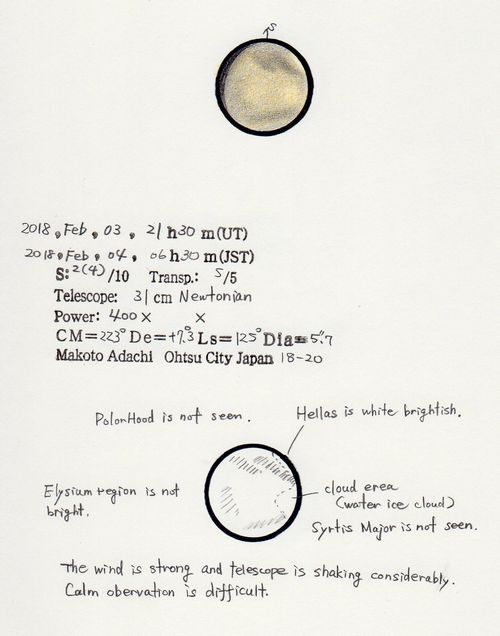 S
2018, Feb, 03, 21 h30 m(UT)
2018, Feb, 04, 06 h30 m(JST)
S: 2(4) /10 Transp: 5/5
Telescope: 31 cm Newtonian
Power: 400 × ×
CM=223° De=+7.°3 Ls=125° Dia=5."7
Makoto Adachi Ohtsu City Japan 18-20
PolorHood is not seen.
Hellas is white brightish.
Elysium region is not
bright.
cloud erea
(water ice cloud)
Syrtis Major is not seen.
The wind is strong and telescope is shaking considerably.
Calm obervation is difficult.